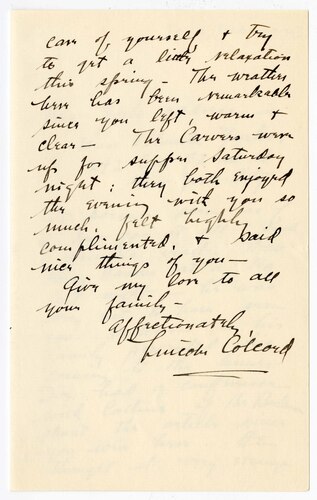 care of yourself, & try
to get a little relaxation
this spring — The weather
here has been remarkable
since you left, warm &
clear — The Carvers were
up for supper Saturday
night; they both enjoyed
the evening with you so
much, felt highly
complimented, & said
nice things of you —
Give my love to all
your family —
Affectionately,
Lincoln Colcord